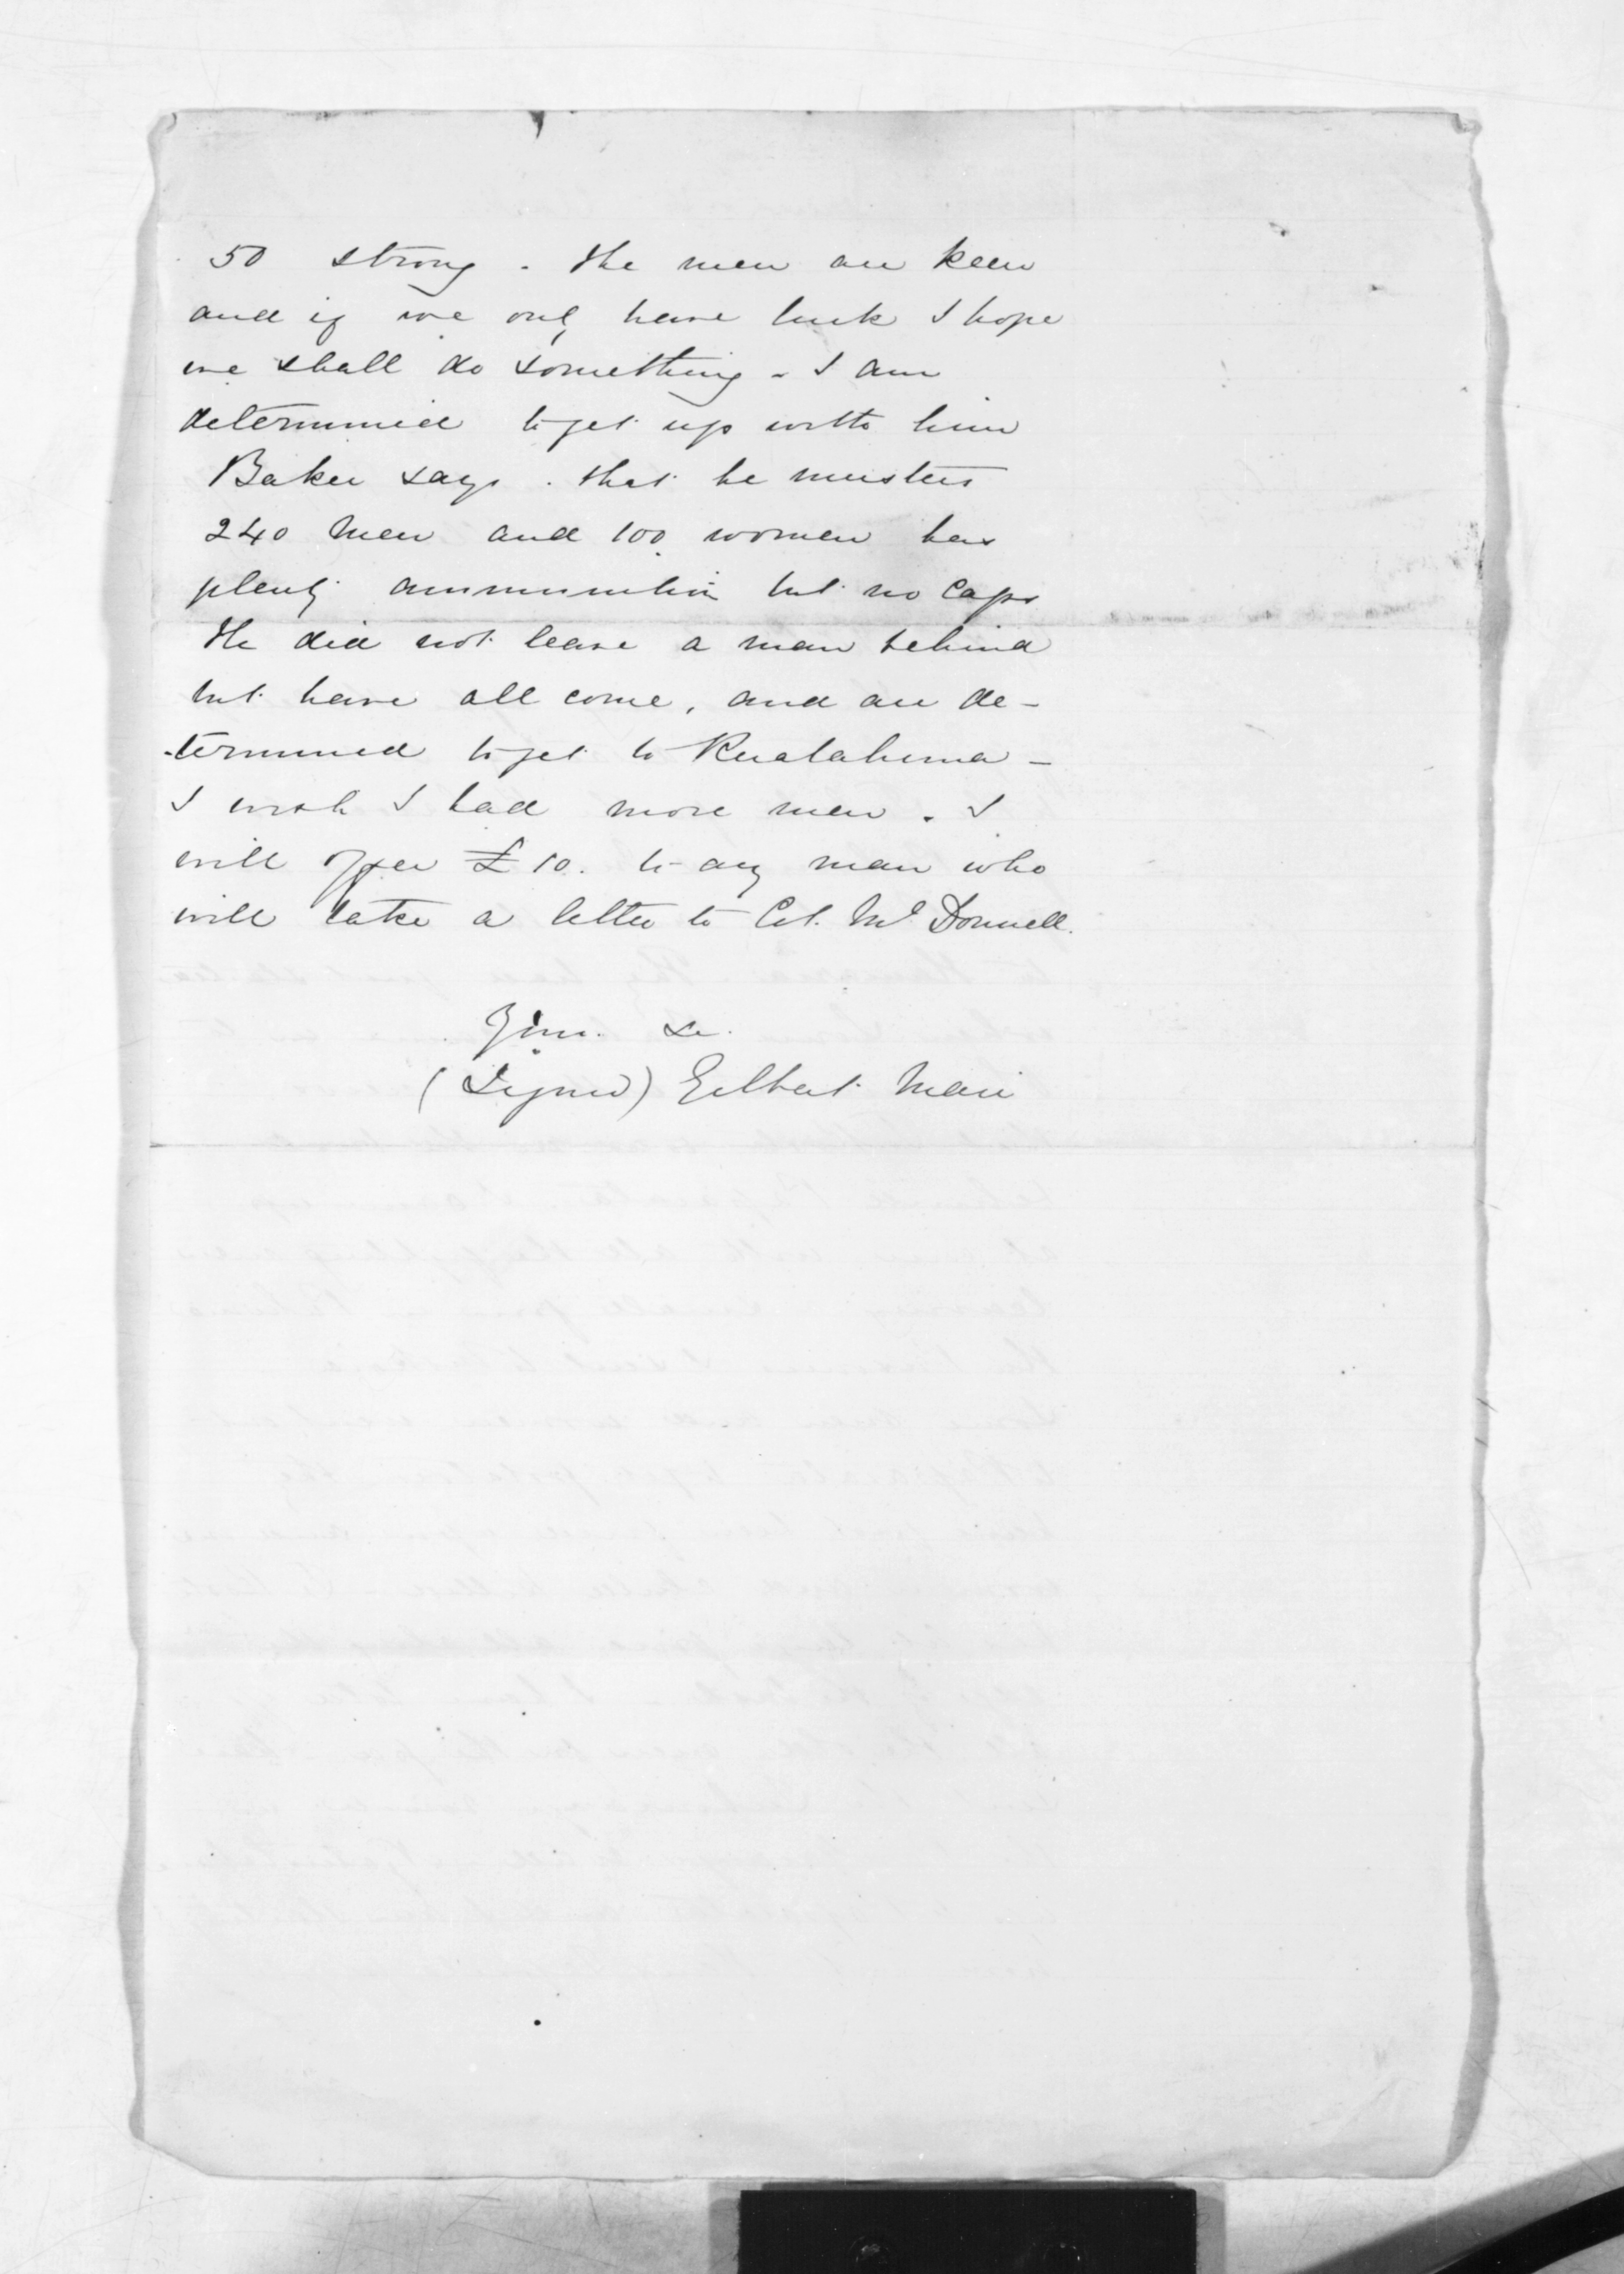 50 strong. The men are keen
and if we only have luck I hope
we shall do something - I am
determined to get up with him
Baker says. that he musters
240 men and 100 women has
plenty ammunition but no caps
He did not leave a man behind
but have all come, and are de-
-termined to get to Ruatahuna -
I wish I had more men. I
will offer £10. to any man who
will take a letter to Col. McDonnell.
Yrs. &c.
(Signed) Gilbert Mair